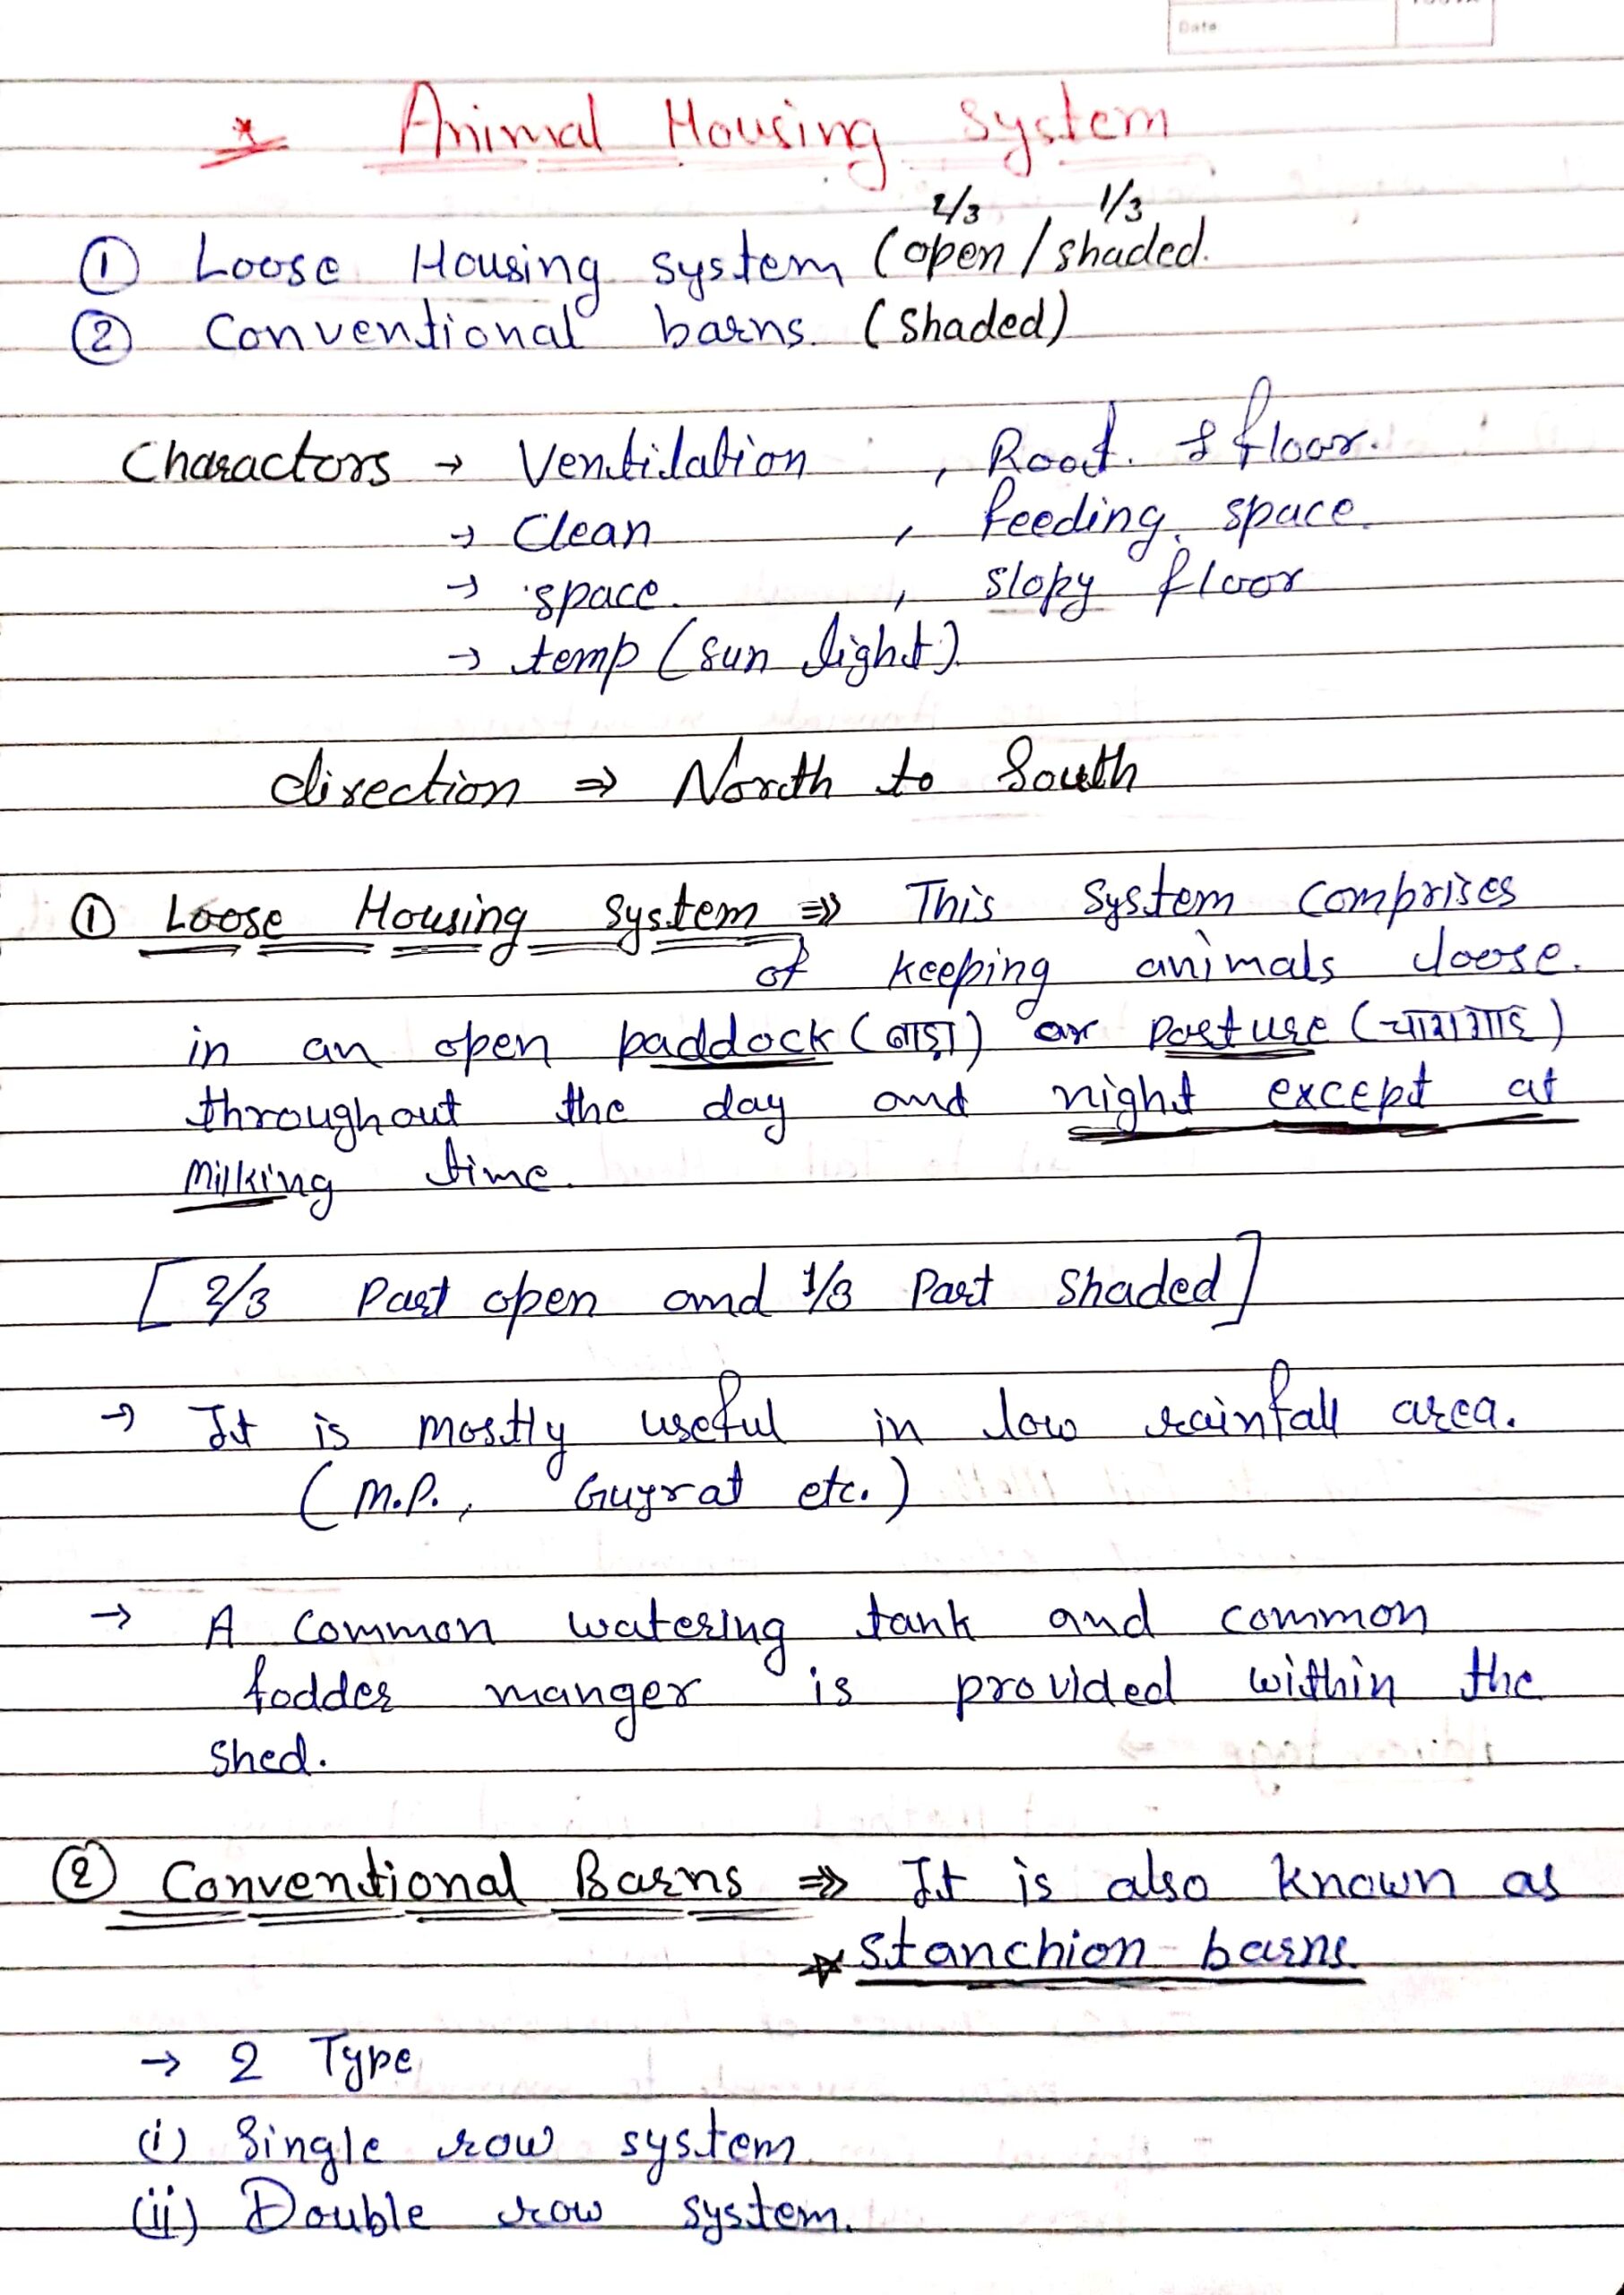 Date
* Animal Housing System
2/3 1/3
① Loose Housing system (open / shaded.
② Conventional barns. (shaded)
Charactors → Ventilation , Roof. & floor.
→ Clean , feeding space.
→ space. , slopy floor
→ temp (sun light).
direction ⇒ North to South
① Loose Housing System ⇒ This System comprises
of keeping animals loose.
in an open paddock (बाड़ा) or pasture (चारागाह)
throughout the day and night except at
milking time.
[ 2/3 Part open and 1/3 Part shaded ]
→ It is mostly useful in low rainfall area.
(M.P., Gujrat etc.)
→ A common watering tank and common
fodder manger is provided within the
shed.
② Conventional Barns ⇒ It is also known as
* stanchion barns.
→ 2 Type
(i) Single row system.
(ii) Double row system.